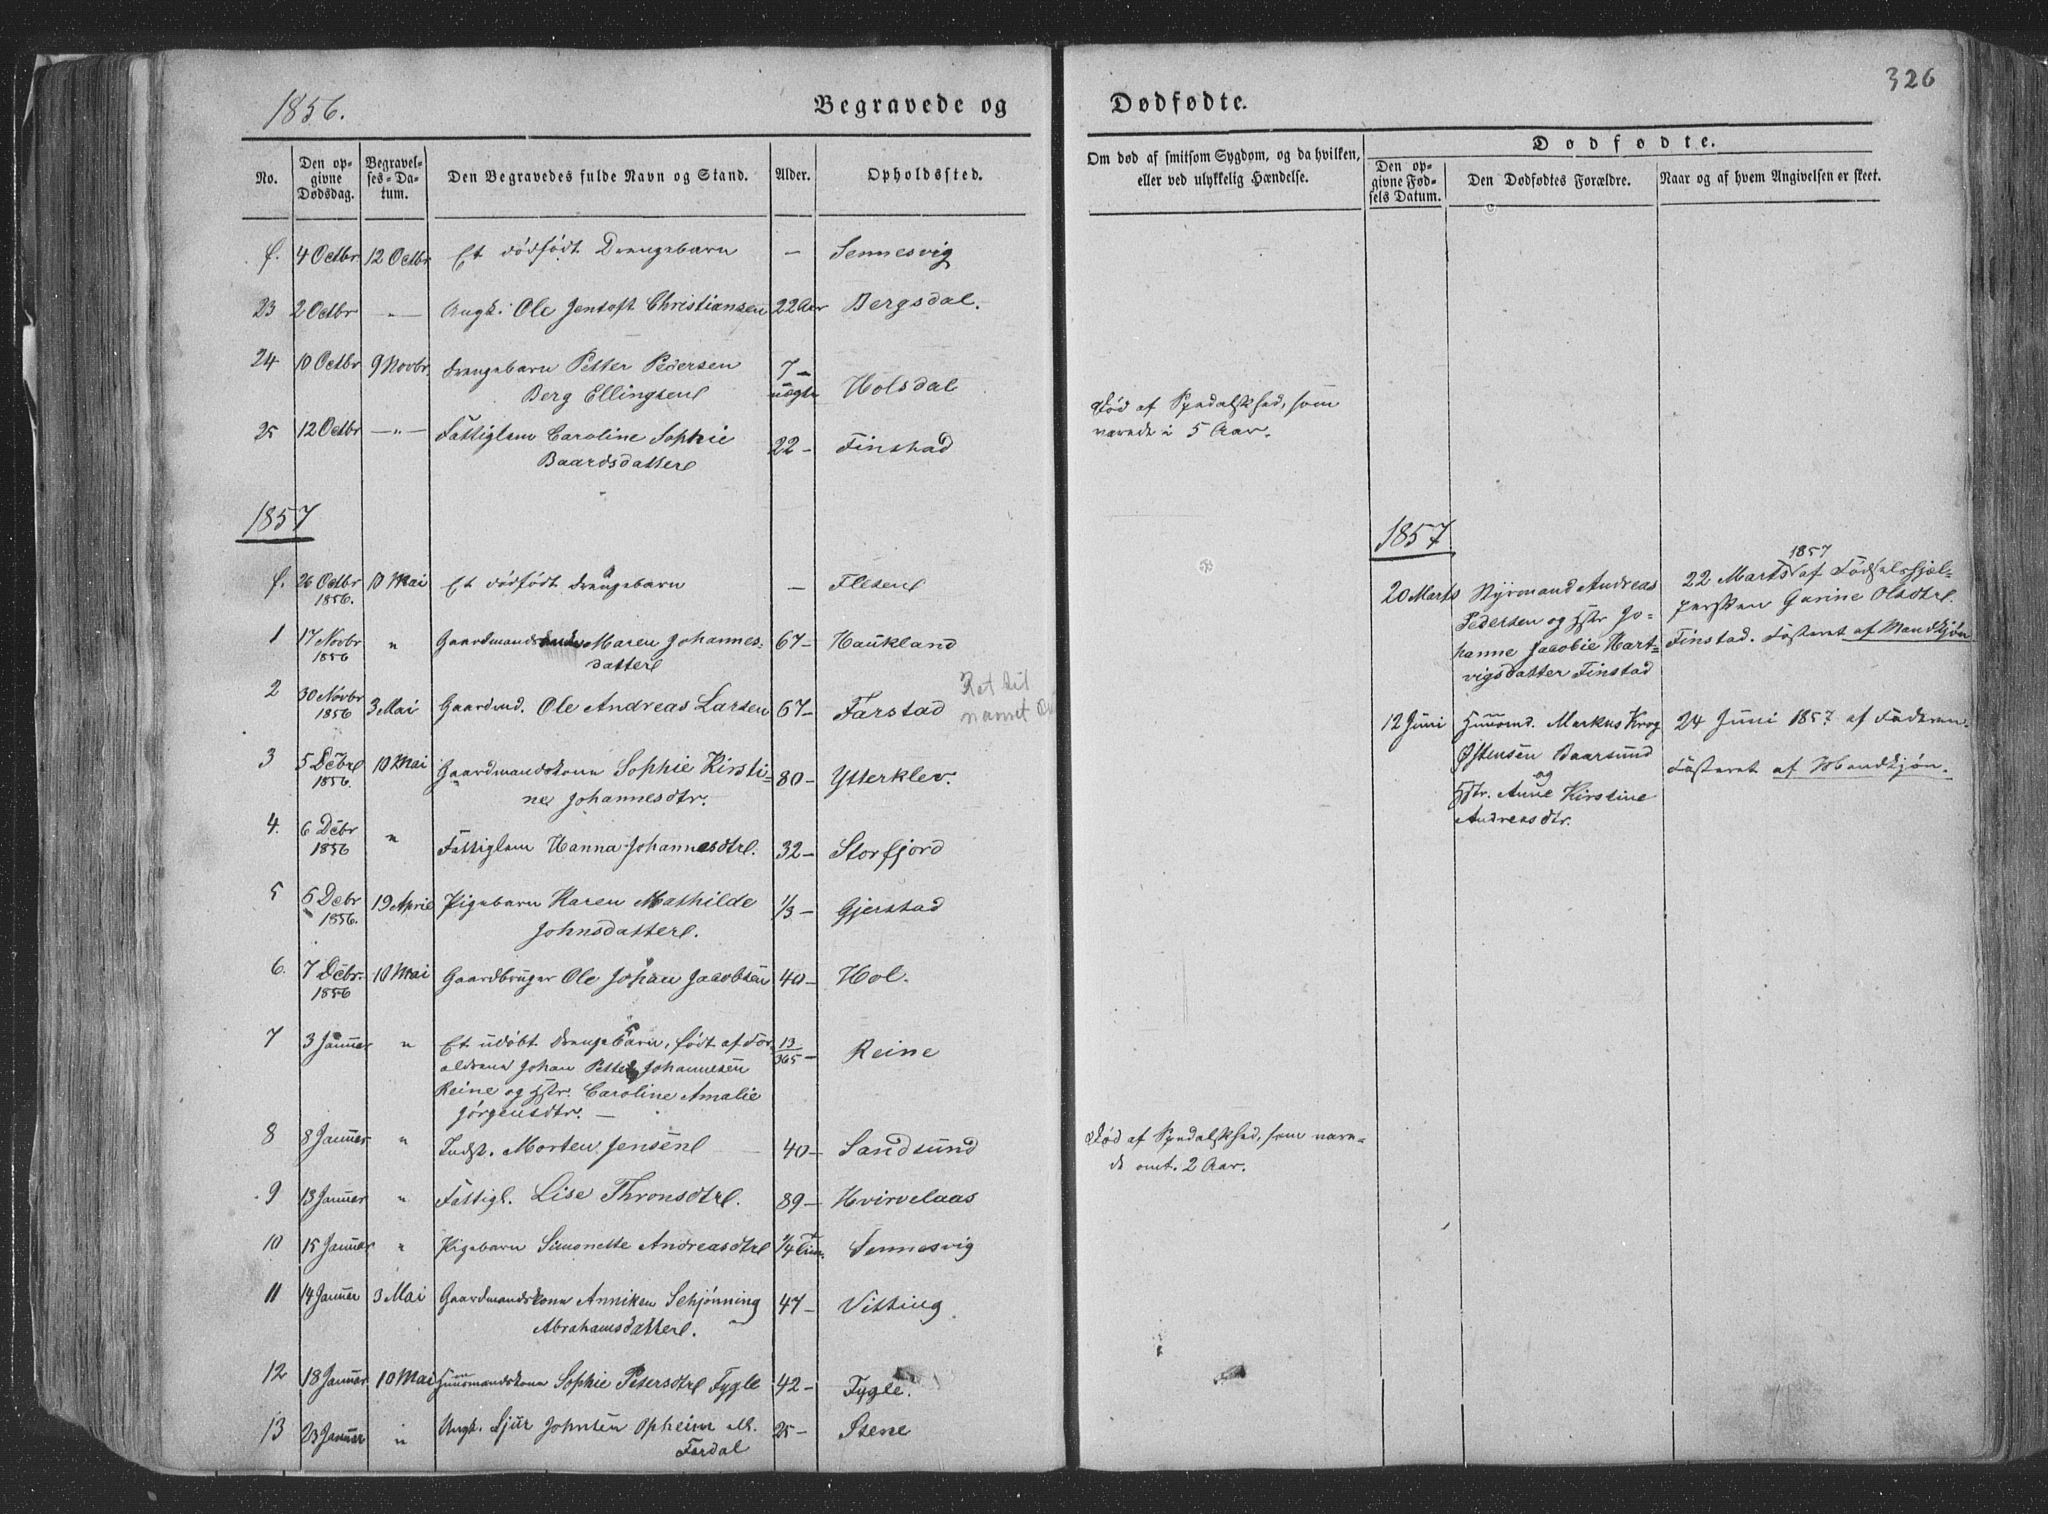 1856.
Begravede og
No.
Den opgivne Dødsdag.
Begravelses-Datum.
Den Begravedes fulde Navn og Stand.
Alder.
Opholdssted.
f. 4 Octbr 12 Octbr Et dødfødt Drengebarn — Sennesvig
23 2 Octbr —"— Ungk. Ole Jentoft Christiansen 22 Aar Bergsdal.
24 10 Octbr 9 Novbr. Drengebarn Petter Pedersen 7 —
Berg Ellingsen uægte Holsdal
25 12 Octbr —"— Fattiglem Caroline Sophie 22 — Finstad
Baardsdatter
1857
f. 26 Octbr 1856. 10 Mai Et dødfødt Drengebarn — Flesen
1 17 Novbr 1856 " Gaardmandskone Maren Johannes- 67 — Haukland
datter
2 30 Novbr 1856 3 Mai Gaardmd. Ole Andreas Larsen 67 — Farstad
Ret til
navnet
3 5 Decbr 1856. 10 Mai Gaardmandskone Sophie Kirsti- 80 — Ytterklev.
ne Johannesdtr.
4. 6 Decbr 1856 " Fattiglem Hanna Johannesdtr. 32 — Storfjord
5 6 Decbr 1856. 19 April Pigebarn Karen Mathilde 1/3 — Gjerstad
Johnsdatter.
6. 7 Decbr. 1856 10 Mai Gaardbruger Ole Johan Jacobsen 40 — Hol.
7 3 Januar " Et udøbt Drengebarn, født af For- 13/365 — Reine
ældrene Johan Petter Johannesen
Reine og Hstr. Caroline Amalie
Jørgensdtr. —
8 8 Januar " Indst. Morten Jensen 40 — Sandsund
9 13 Januar " Fattigl. Lise Thronsdtr. 89 — Hvirvelaas
10 15 Januar " Pigebarn Simonette Andreasdtr 1/4 Time. Sennesvig
11 14 Januar 3 Mai Gaardmandskone Anniken Schjønning 47 — Vitting
Abrahamsdatter.
12 18 Januar 10 Mai Huusmandskone Sophie Petersdtr Fygle 42 — Fygle.
13 23 Januar " Ungk. Sjur Johnsen Opheim ell. 25 — Stene
Fardal
Dødfødte.
326
Om død af smitsom Sygdom, og da hvilken,
eller ved ulykkelig Hændelse.
Dødfødte.
Den opgivne Fødsels Datum.
Den Dødfødtes Forældre.
Naar og af hvem Angivelsen er skeet.
Død af Spedalskhed, som
varede i 5 Aar.
1857
20 Marts Styrmand Andreas
Pedersen og Hstr Jo-
hanne Jacobie Hart-
vigsdatter Finstad
1857
22 Marts af Fødselshjæl-
persken Garine Olsdtr.
Finstad. Fosteret af Mandkjøn
12 Juni Huusmd. Markus Krog
Østensen Baarsund
og
Hstr. Anne Kirstine
Andreasdtr.
24 Juni 1857 af Faderen.
Fosteret af Mandkjøn.
Død af Spedalskhed, som vare-
de omt. 2 Aar.